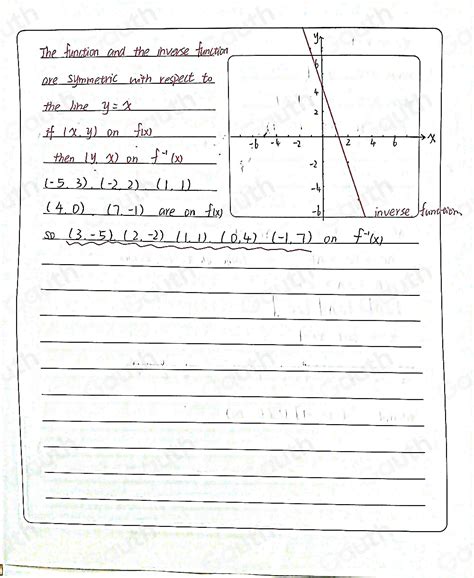 The function and the inverse function
are symmetric with respect to
the line y = x
if (x, y) on f(x)
then (y, x) on f⁻¹(x)
(-5, 3), (-2, 2) (1, 1)
(4, 0) (7, -1) are on f(x)
so (3, -5) (2, -2) (1, 1) (0, 4) (-1, 7) on f⁻¹(x)
y
6
4
2
-6 -4 -2 2 4 6 x
-2
-4
-6
inverse function
Gauth